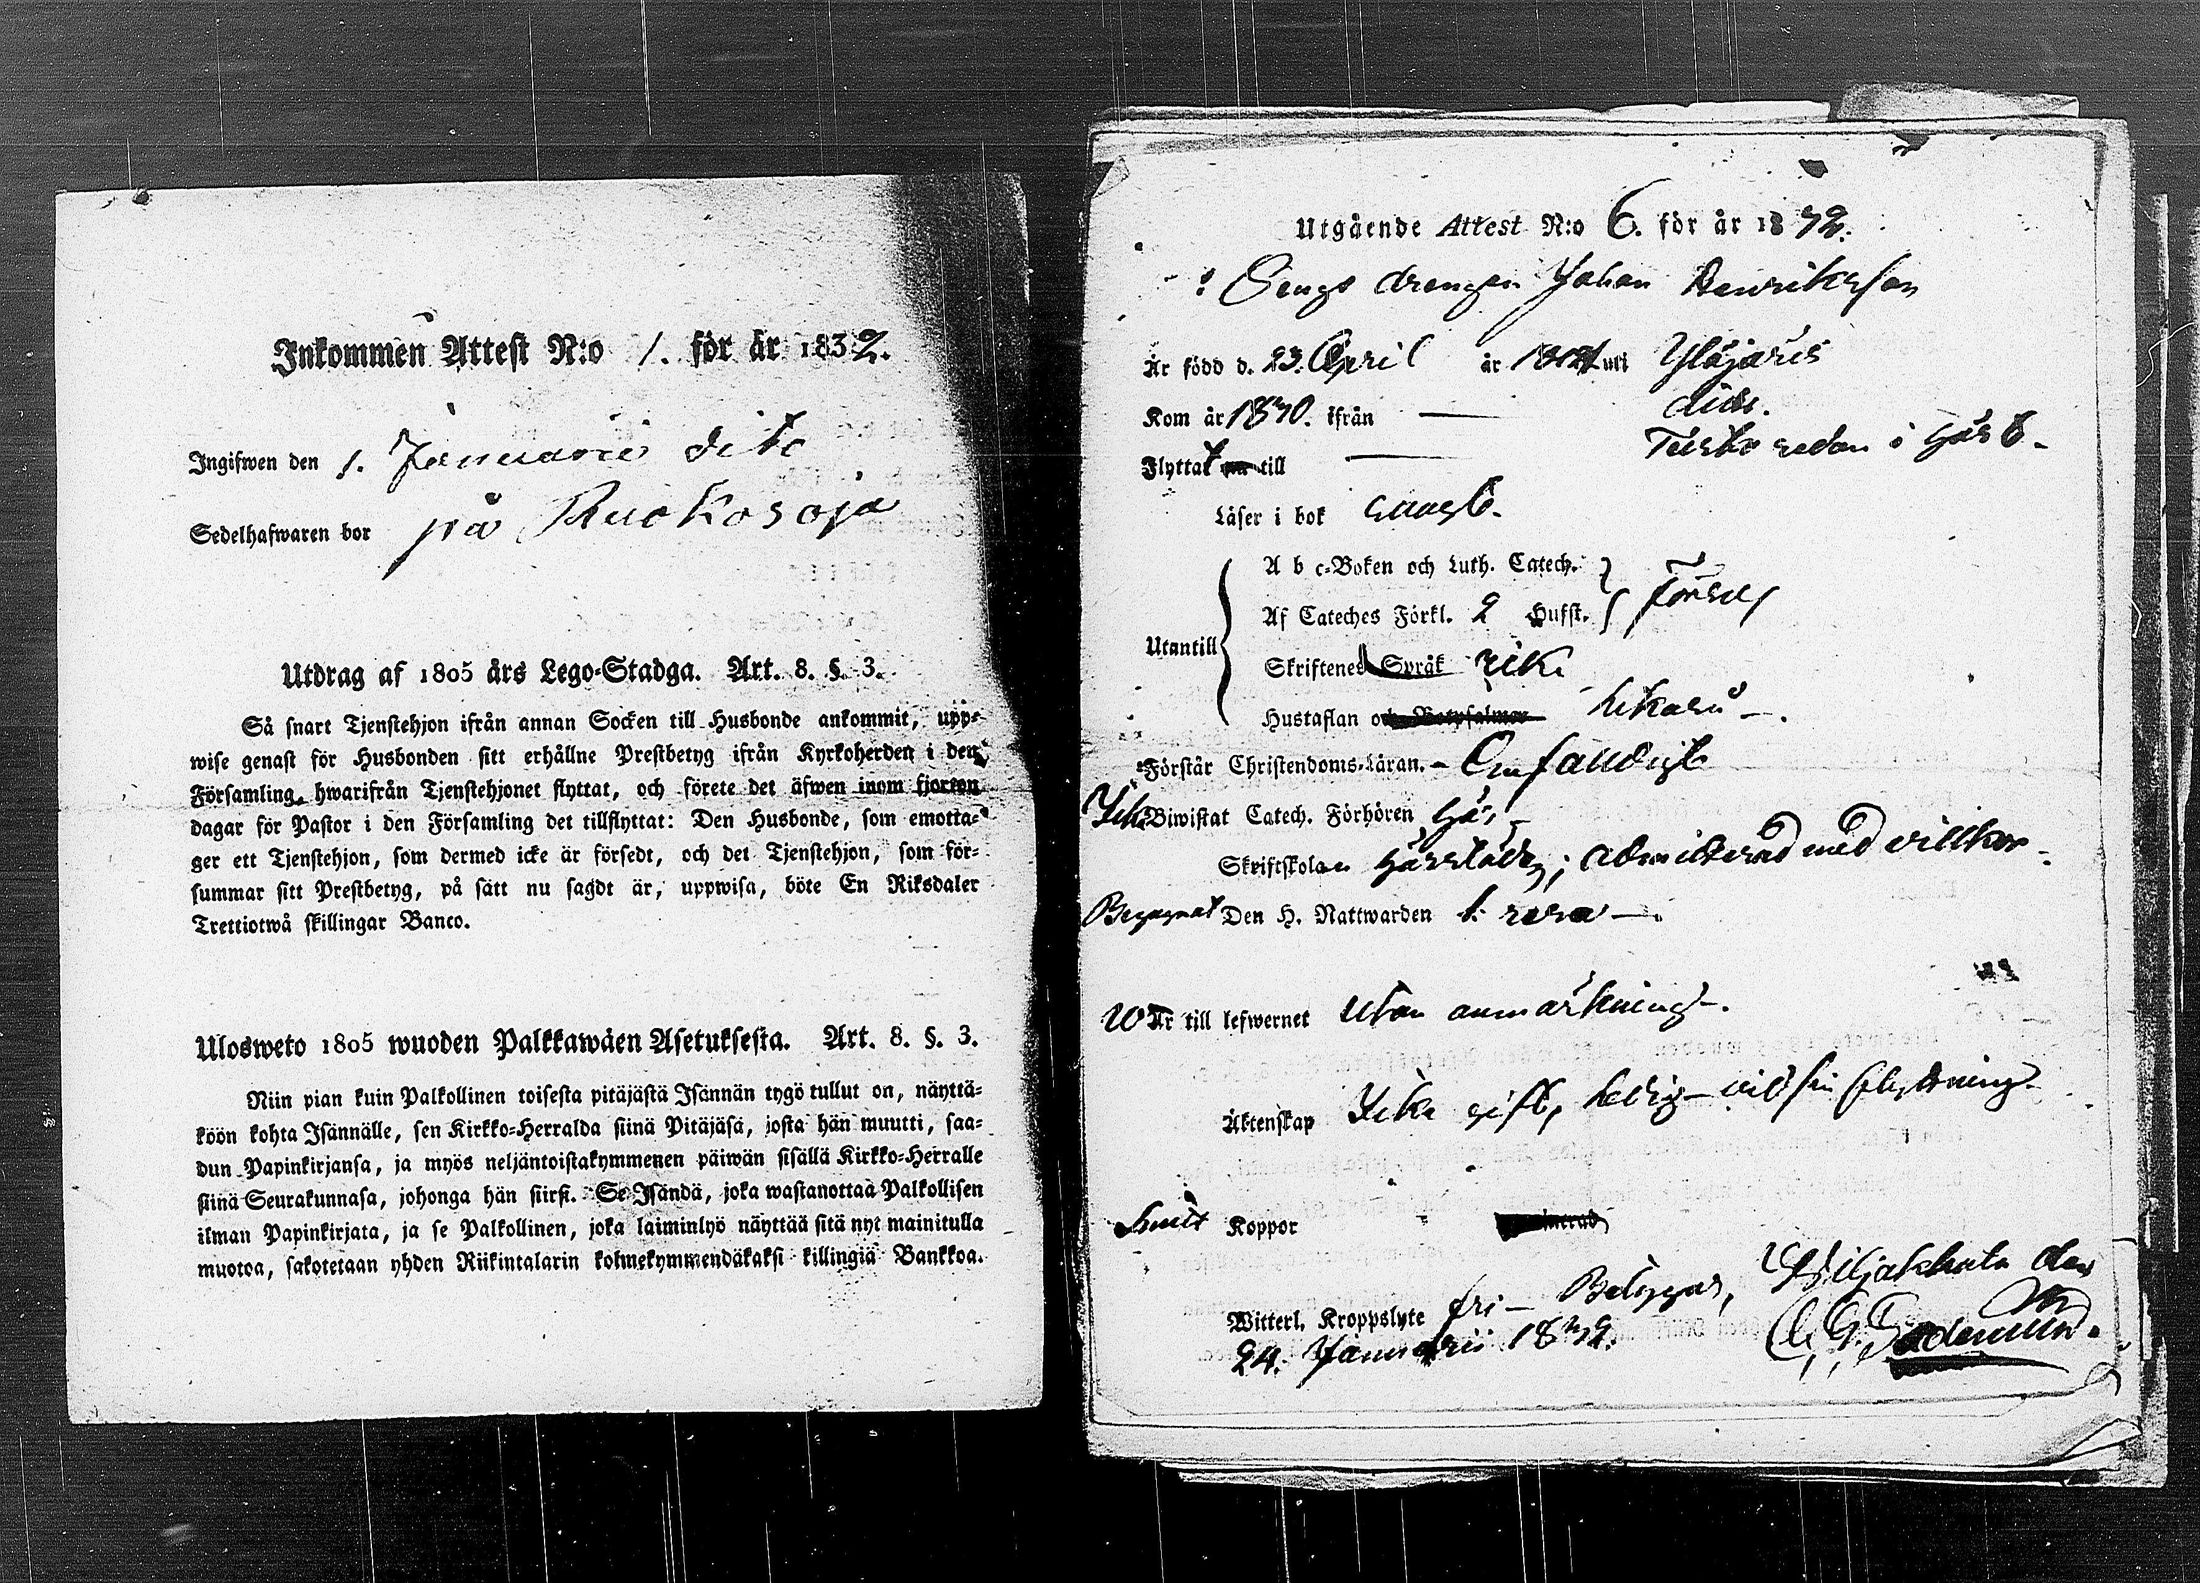 Inkommen Attest N:o 1. för år 1832.
Ingifwen den 1. Januarii dito
Sedelhafwaren bor på Ruokosoja
Utdrag af 1805 års Lego-Stadga. Art. 8. §. 3.
Så snart Tjenstehjon ifrån annan Socken till Husbonde ankommit, upp-
wise genast för Husbonden sitt erhållne Prestbetyg ifrån Kyrkoherden i den
Församling, hwarifrån Tjenstehjonet flyttat, och förete det äfwen inom fjorton
dagar för Pastor i den Församling det tillflyttat: Den Husbonde, som emotta-
ger ett Tjenstehjon, som dermed icke är försedt, och det Tjenstehjon, som för-
summar sitt Prestbetyg, på sätt nu sagdt är, uppwisa, böte En Riksdaler
Trettiotwå skillingar Banco.
Ulosweto 1805 wuoden Palkkawäen Asetuksesta. Art. 8. §. 3.
Niin pian kuin Palkollinen toisesta pitäjästä Isännän tygö tullut on, näyttä-
köön kohta Isännälle, sen Kirkko-Herralda siinä Pitäjäsä, josta hän muutti, saa-
dun Papinkirjansa, ja myös neljäntoistakymmenen päiwän sisällä Kirkko-Herralle
siinä Seurakunnasa, johonga hän siirsi. Se Isändä, joka wastanottaa Palkollisen
ilman Papinkirjata, ja se Palkollinen, joka laiminlyö näyttää sitä nyt mainitulla
muotoa, sakotetaan yhden Riikintalarin kolmekymmendäkaksi killingiä Bankkoa.
Utgående Attest N:o 6. för år 1832.
drengen Johan Henriksson
Är född d. 23. April år uti Yläjäris
Kom år 1830. ifrån — dito.
Flyttat till — redan i
Läser i bok
A b c-Boken och Luth. Catech.
Af Cateches Förkl. 2 Hufst.
Utantill
Skriftenes Språk icke
Hustaflan och Botpsalmer likaså —.
Förstår Christendoms-Läran. — Enfaldigt
Biwistat Catech. Förhören
Skriftskolan ; admitterad med villkor
Begagnat Den H. Nattwarden
Är till lefwernet utan anmärkning —.
Äktenskap Icke gift, ledig vid sin flyttning
haft Koppor
Witterl. Kroppslyte fri — Betygar, Wiljakkala den
24. Januarii 1832.